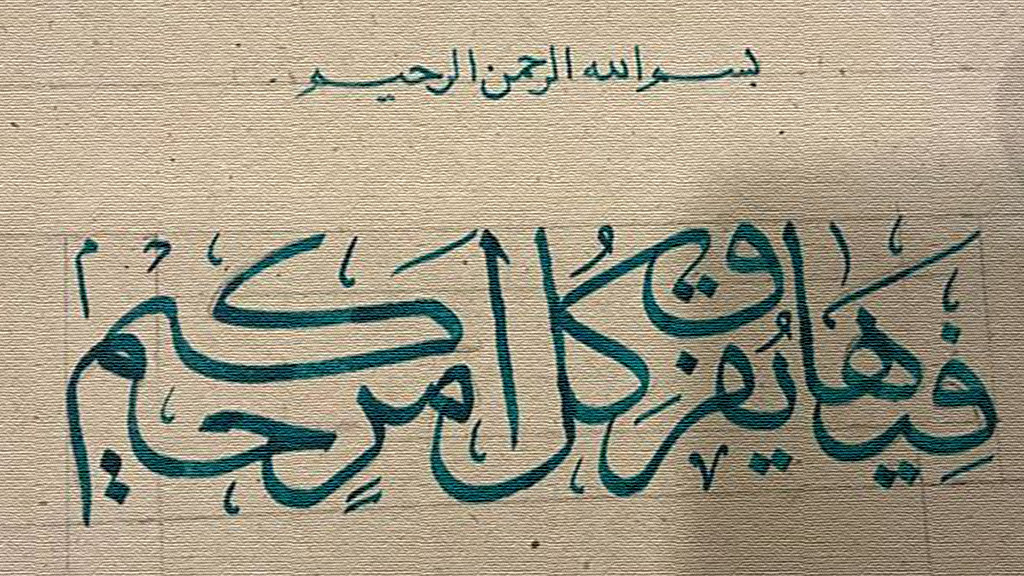 بسم الله الرحمن الرحيم
فِيهَا يُفرَق كُل أَمرٍ حَكيم